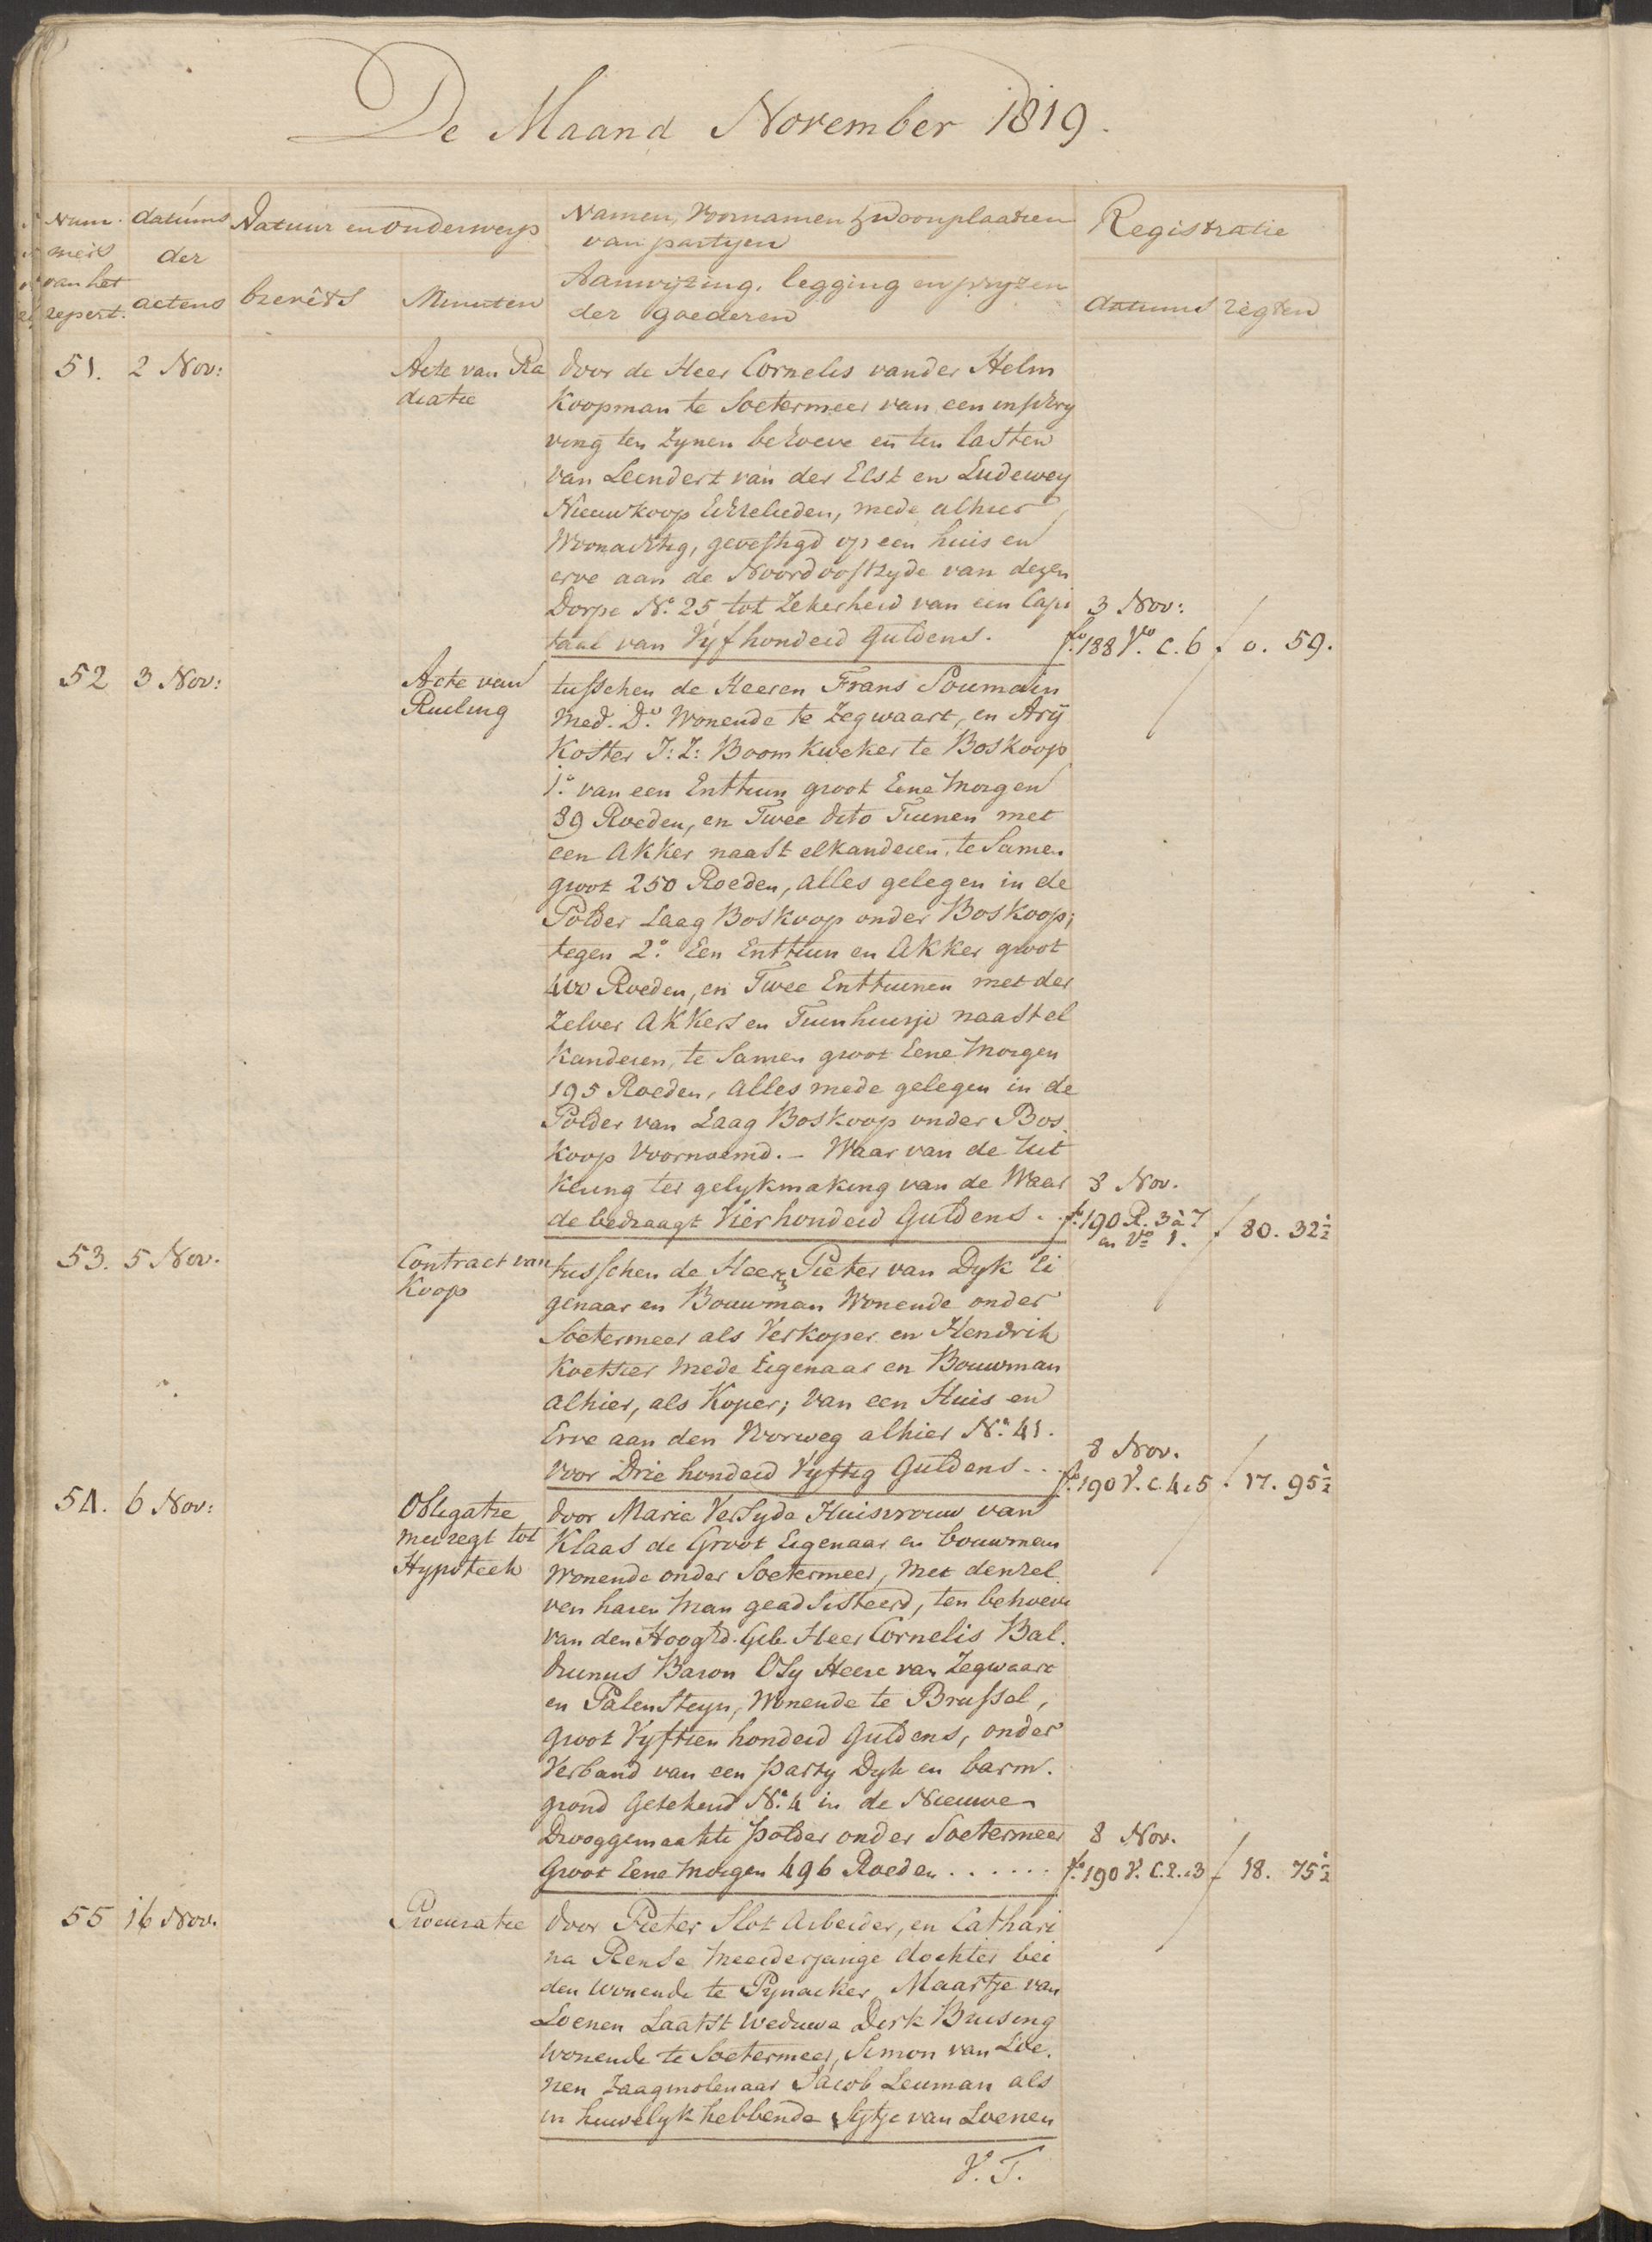 De Maand November 1819.
Num- datums Natuur en Onderwerp Namen, Voornamen & woonplaatsen Registratie
mers der van partyen
van het actens brevêts Minuten Aanwyzing, legging en pryzen datums regten
repert. der goederen
51. 2 Nov: Acte van Ra door de Heer Cornelis vander Helm
diatie Koopman te Soetermeer van een inschry
ving ten zynen behoeve en ten lasten
van Leendert van der Elst en Ludewey
Nieuwkoop Echtelieden, mede alhier
Woonachtig, gevestigd op een huis en
erve aan de Noordoostzyde van dezen
Dorpe No. 25 tot Zekerheid van een Capi 3 Nov:
taal van Vijfhonderd Guldens. fo. 188 Vo. C. 6 f 0. 59.
52 3 Nov: Acte van tusschen de Heeren Frans Soumain
Ruiling Med. Dr. Wonende te Zegwaart, en Arij
Koster J: Z: Boomkweker te Boskoop
1o. van een Enttuin groot Eene Morgen
89 Roeden, en Twee dito Tuinen met
een Akker naast elkanderen, te Samen
groot 250 Roeden, alles gelegen in de
Polder Laag Boskoop onder Boskoop;
tegen 2o. Een Enttuin en Akker groot
400 Roeden, en Twee Enttuinen met der
Zelver Akkers en Tuinhuisje naast el
kanderen, te Samen groot Eene Morgen
195 Roeden, Alles mede gelegen in de
Polder van Laag Boskoop onder Bos.
koop Voornoemd. - Waar van de Uit
kering ter gelykmaking van de Waar 8 Nov.
de bedraagt Vierhonderd Guldens. fo. 190 R. 3 à 7 f 80. 32½
en Vo 1.
53. 5 Nov. Contract van tusschen de Heer Pieter van Dyk Ei
Koop genaar en Bouwman Wonende onder
Soetermeer als Verkoper en Hendrik
Koetsier mede Eigenaar en Bouwman
alhier, als Koper; van een Huis en
Erve aan den Voorweg alhier No. 41. 8 Nov.
Voor Drie honderd Vyftig Guldens.. fo. 190 V. C. 4.5 f 17. 95½
54. 6 Nov: Obligatie door Maria Versyde Huisvrouw van
met regt tot Klaas de Groot Eigenaar en bouwman
Hypoteek Wonende onder Soetermeer, Met denzel
ven haren Man geadsisteerd, ten behoeve
van den Hoogtd. Geb. Heer Cornelis Bal.
duinus Baron Osy Heere van Zegwaart
en Palensteyn, Wonende te Brussel,
groot Vyftien honderd Guldens, onder
Verband van een party Dyk en barm.
grond Getekend No. 4 in de Nieuwe
Drooggemaakte polder onder Soetermeer 8 Nov.
Groot Eene Morgen 496 Roeden ...... fo. 190 V. C. 2.3 f 18. 75½
55 16 Nov. Procuratie door Pieter Slot Arbeider, en Cathari
na Rense Meerderjarige dochter bei
den wonende te Pynacker, Maartje van
Loenen Laatst Weduwe Dirk Bruising
wonende te Soetermeer, Simon van Loe.
nen Zaagmolenaar Jacob Leuman als
in huwelyk hebbende Sytje van Loenen
V. T.